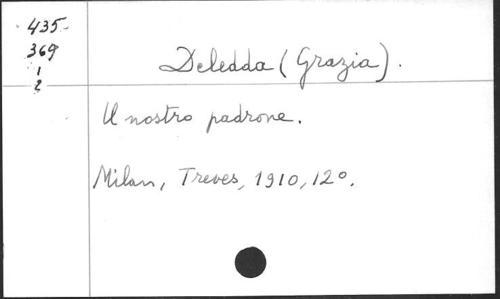 435
369
1
2
Deledda (Grazia).
Il nostro padrone.
Milan, Treves, 1910, 12º.